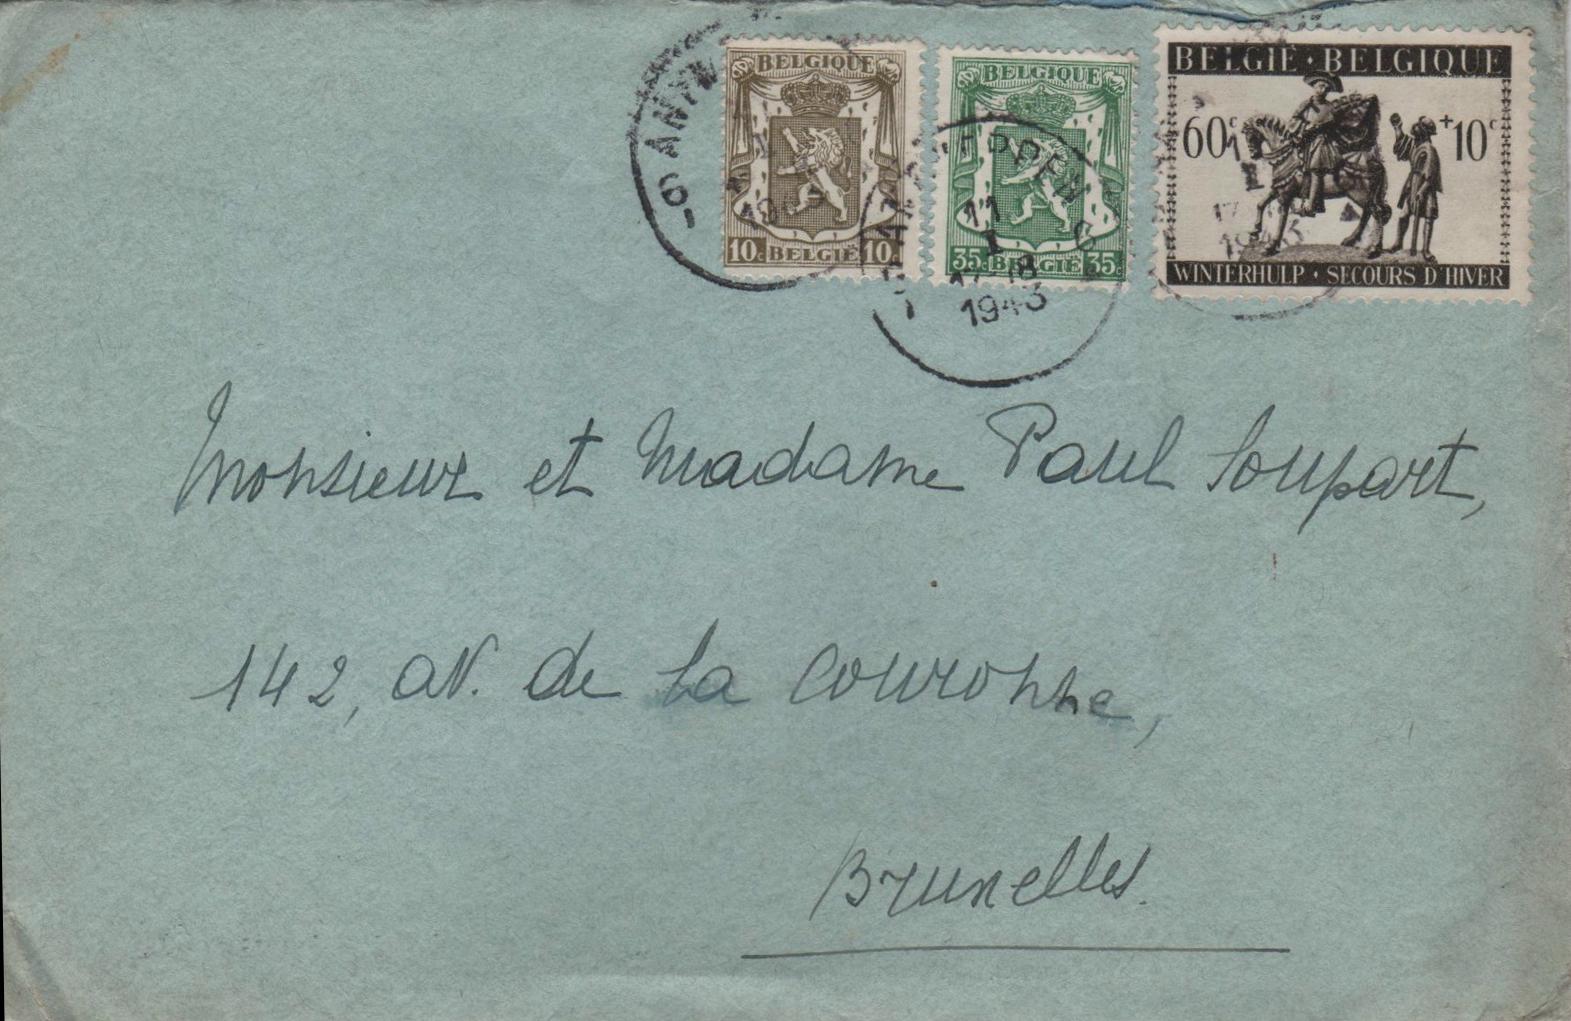 BELGIQUE
10c BELGIË 10c
BELGIQUE
35c BELGIË 35c
BELGIË · BELGIQUE
60c +10c
WINTERHULP · SECOURS D'HIVER
ANTWERPPEN
11
I
17-18
1943
Monsieur et Madame Paul Soupart,
142, av. de la Couronne,
Bruxelles.